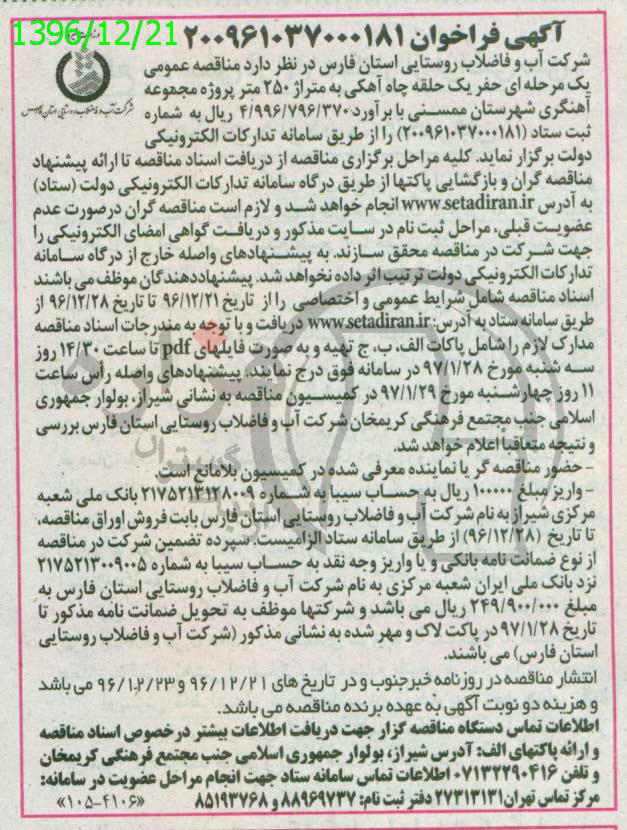 1396/12/21
آگهی فراخوان ۲۰۰۹۶۱۰۳۷۰۰۰۱۸۱
شرکت آب و فاضلاب روستایی استان فارس
شرکت آب و فاضلاب روستایی استان فارس در نظر دارد مناقصه عمومی
یک مرحله ای حفر یک حلقه چاه آهکی به متراژ ۲۵۰ متر پروژه مجموعه
آهنگری شهرستان ممسنی با برآورد ۴/۹۹۶/۷۹۶/۳۷۰ ریال به شماره
ثبت ستاد (۲۰۰۹۶۱۰۳۷۰۰۰۱۸۱) را از طریق سامانه تدارکات الکترونیکی
دولت برگزار نماید. کلیه مراحل برگزاری مناقصه از دریافت اسناد مناقصه تا ارائه پیشنهاد
مناقصه گران و بازگشایی پاکتها از طریق درگاه سامانه تدارکات الکترونیکی دولت (ستاد)
به آدرس www.setadiran.ir انجام خواهد شد و لازم است مناقصه گران درصورت عدم
عضویت قبلی، مراحل ثبت نام در سایت مذکور و دریافت گواهی امضای الکترونیکی را
جهت شرکت در مناقصه محقق سازند. به پیشنهادهای واصله خارج از درگاه سامانه
تدارکات الکترونیکی دولت ترتیب اثر داده نخواهد شد. پیشنهاددهندگان موظف می باشند
اسناد مناقصه شامل شرایط عمومی و اختصاصی را از تاریخ ۹۶/۱۲/۲۱ تا تاریخ ۹۶/۱۲/۲۸ از
طریق سامانه ستاد به آدرس: www.setadiran.ir دریافت و با توجه به مندرجات اسناد مناقصه
مدارک لازم را شامل پاکات الف، ب، ج تهیه و به صورت فایلهای pdf تا ساعت ۱۴/۳۰ روز
سه شنبه مورخ ۹۷/۱/۲۸ در سامانه فوق درج نمایند. پیشنهادهای واصله رأس ساعت
۱۱ روز چهارشنبه مورخ ۹۷/۱/۲۹ در کمیسیون مناقصه به نشانی شیراز، بولوار جمهوری
اسلامی جنب مجتمع فرهنگی کریمخان شرکت آب و فاضلاب روستایی استان فارس بررسی
و نتیجه متعاقبا اعلام خواهد شد.
- حضور مناقصه گر یا نماینده معرفی شده در کمیسیون بلامانع است.
- واریز مبلغ ۱۰۰۰۰۰ ریال به حساب سیبا به شماره ۲۱۷۵۲۱۳۱۲۸۰۰۹ بانک ملی شعبه
مرکزی شیراز به نام شرکت آب و فاضلاب روستایی استان فارس بابت فروش اوراق مناقصه،
تا تاریخ (۹۶/۱۲/۲۸) از طریق سامانه ستاد الزامیست. سپرده تضمین شرکت در مناقصه
از نوع ضمانت نامه بانکی و یا واریز وجه نقد به حساب سیبا به شماره ۲۱۷۵۲۱۳۰۰۹۰۰۵
نزد بانک ملی ایران شعبه مرکزی به نام شرکت آب و فاضلاب روستایی استان فارس به
مبلغ ۲۴۹/۹۰۰/۰۰۰ ریال می باشد و شرکتها موظف به تحویل ضمانت نامه مذکور تا
تاریخ ۹۷/۱/۲۸ در پاکت لاک و مهر شده به نشانی مذکور (شرکت آب و فاضلاب روستایی
استان فارس) می باشند.
انتشار مناقصه در روزنامه خبرجنوب و در تاریخ های ۹۶/۱۲/۲۱ و ۹۶/۱۲/۲۳ می باشد
و هزینه دو نوبت آگهی به عهده برنده مناقصه می باشد.
اطلاعات تماس دستگاه مناقصه گزار جهت دریافت اطلاعات بیشتر درخصوص اسناد مناقصه
و ارائه پاکتهای الف: آدرس شیراز، بولوار جمهوری اسلامی جنب مجتمع فرهنگی کریمخان
و تلفن ۰۷۱۳۲۲۹۰۴۱۶ اطلاعات تماس سامانه ستاد جهت انجام مراحل عضویت در سامانه:
مرکز تماس تهران ۲۷۳۱۳۱۳۱ دفتر ثبت نام: ۸۸۹۶۹۷۳۷ و ۸۵۱۹۳۷۶۸ «۱۰۵-۴۱۰۶»